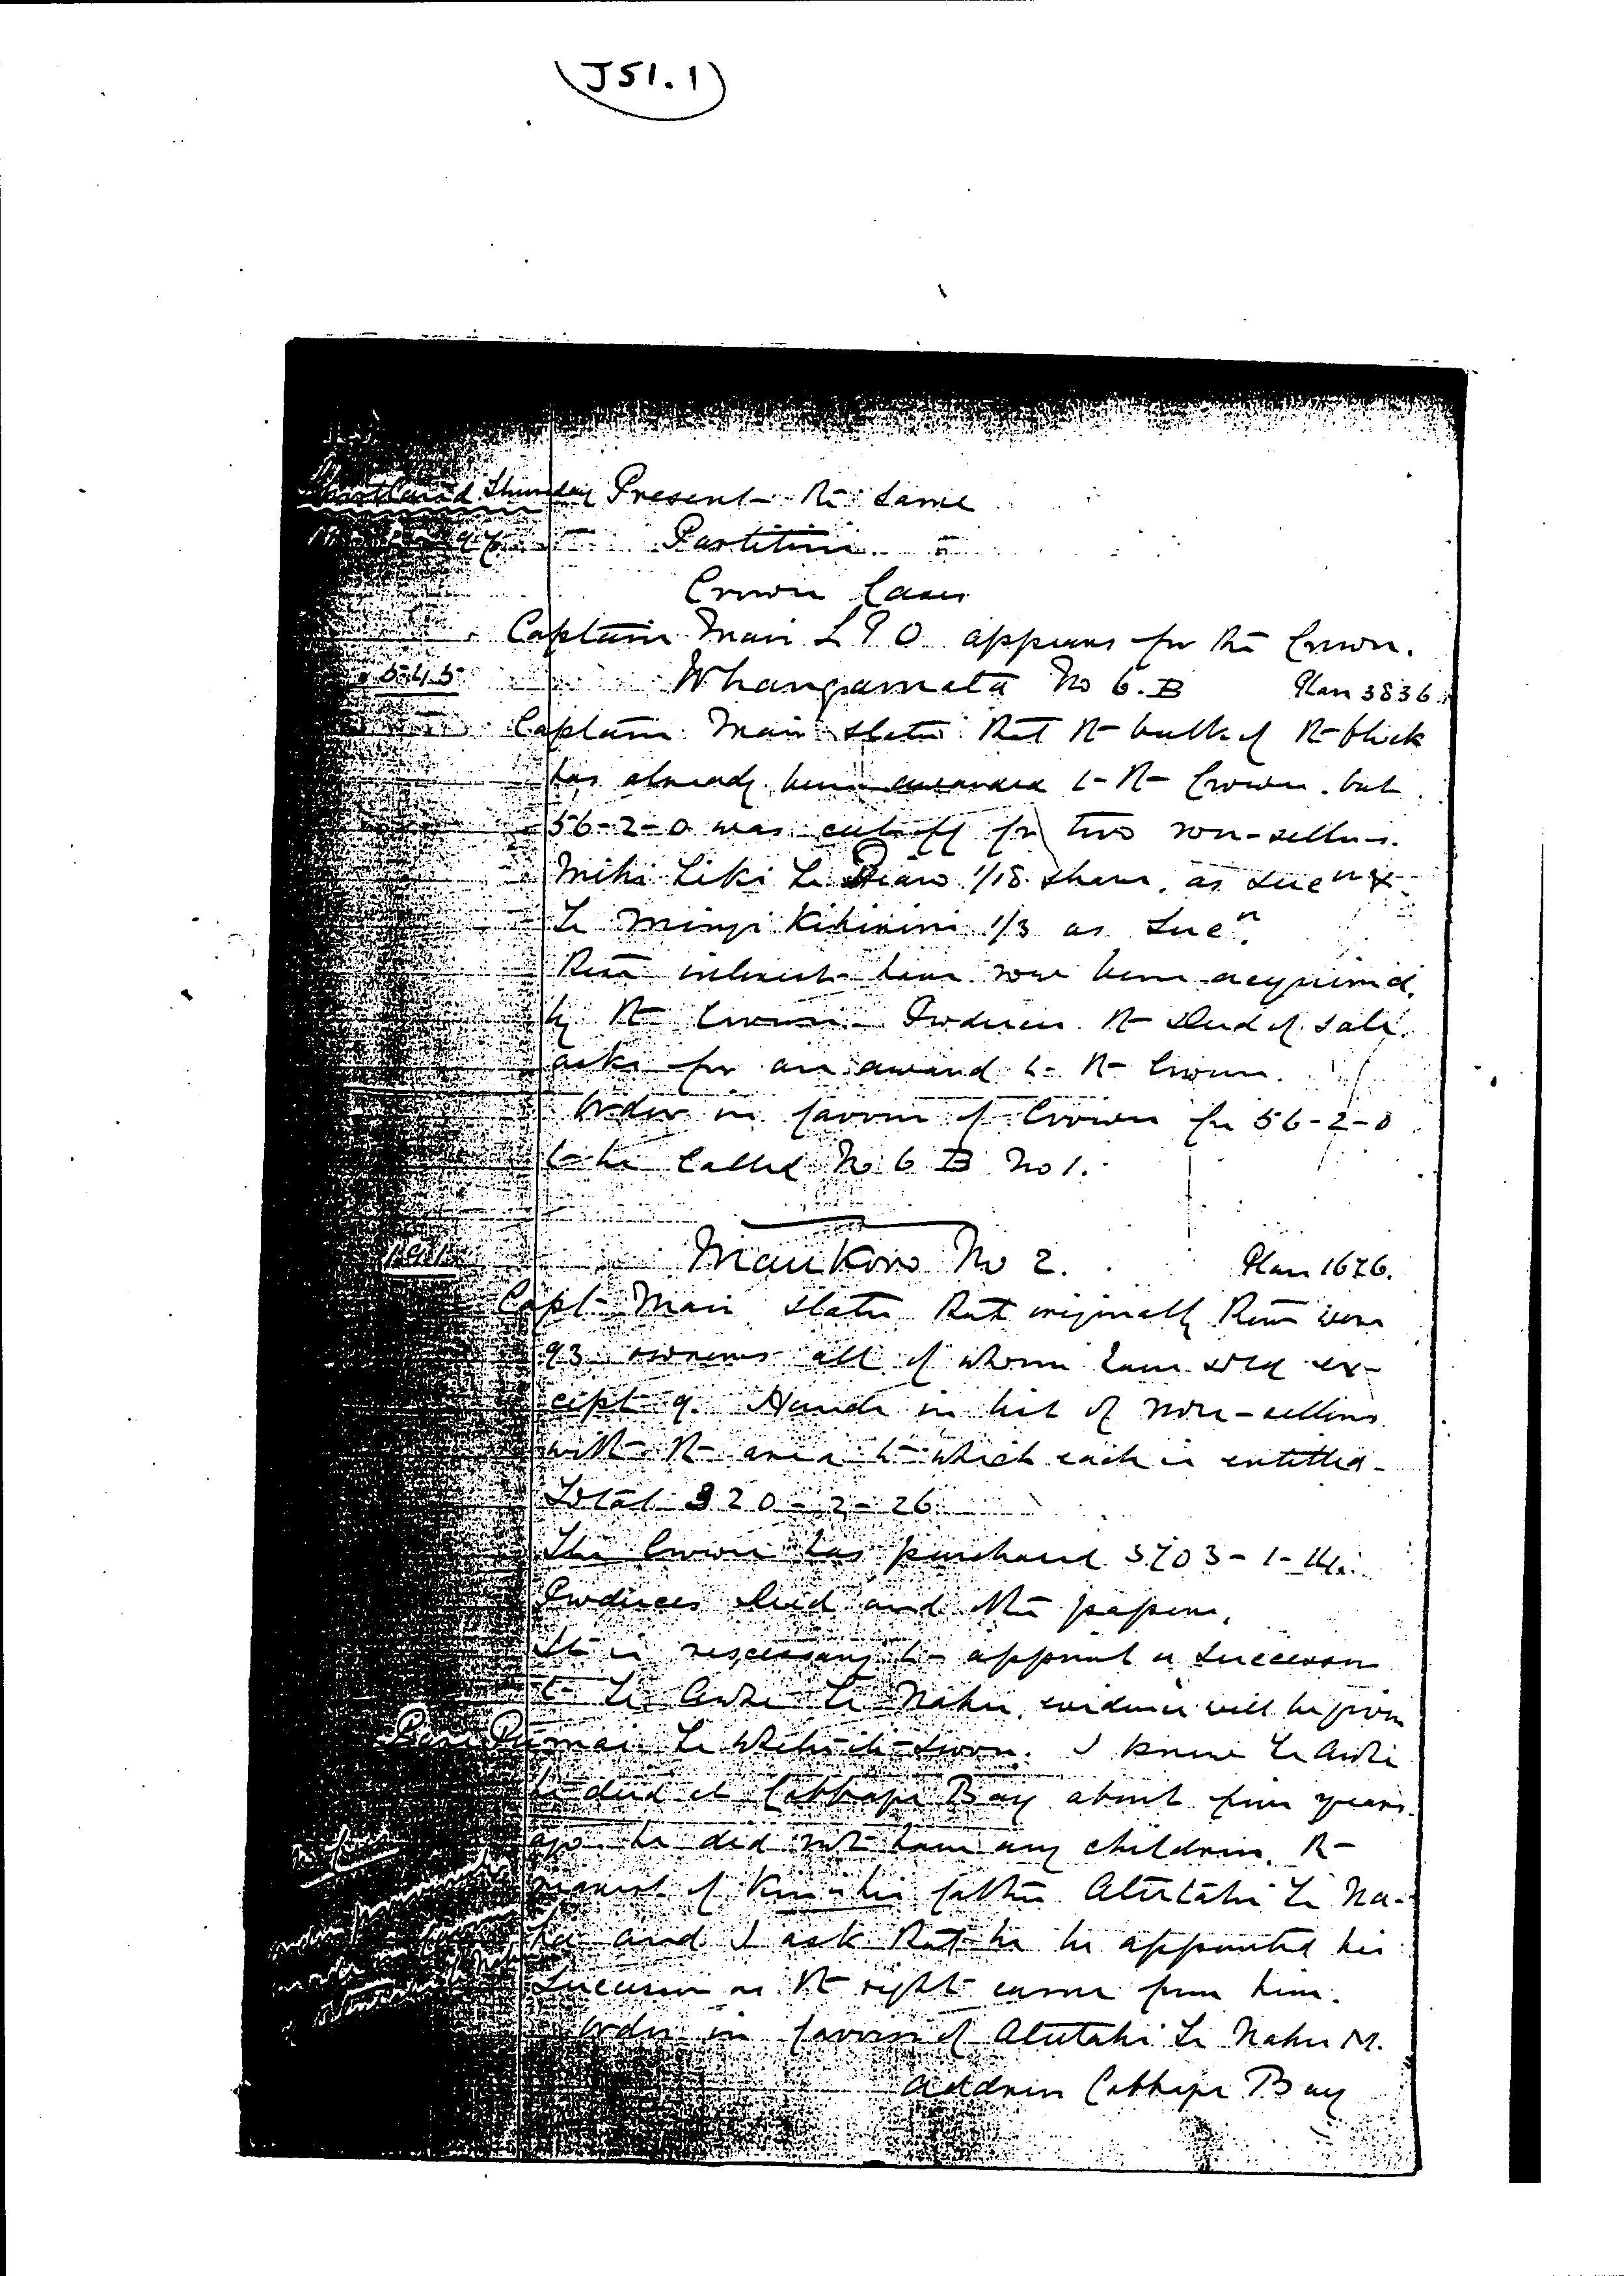 J51.1
Shortland Thursday Present the same
Partition
Crown Cases
Captain Mair L P O appears for the Crown.
545 Whangamata No 6.B Plan 3836.
Captain Mair states that the bulk of the block
has already been awarded to the Crown. but
56-2-0 was cut off for two non-sellers.
Mihi Tiki Te 1/18 share, as Sucn &
Te Mingi Kihirini 1/3 as Sucn.
These interests have now been acquired
by the Crown. Produces the deed of sale
asks for an award to the Crown.
Order in favour of Crown for 56-2-0
to be called No 6 B No 1.
Maukoro No 2. Plan 1676.
Capt Mair states that originally there were
93 owners all of whom have sold ex-
cept 9. Hands in list of non-sellers
with the area to which each is entitled.
Total 320-2-26
The Crown has purchased 3703-1-14.
Produces deed and other papers.
It is nescessary to appoint a successor
to Te Te Nahu, evidence will be given
Pumai Te sworn. I knew Te
he died at Cabbage Bay about four years
ago he did not have any children. The
nearest of Kin is his father Atutahi Te Na-
hu and I ask that he be appointed his
Successor as the right came from him.
Order in favour of Atutahi Te Nahu M.
address Cabbage Bay